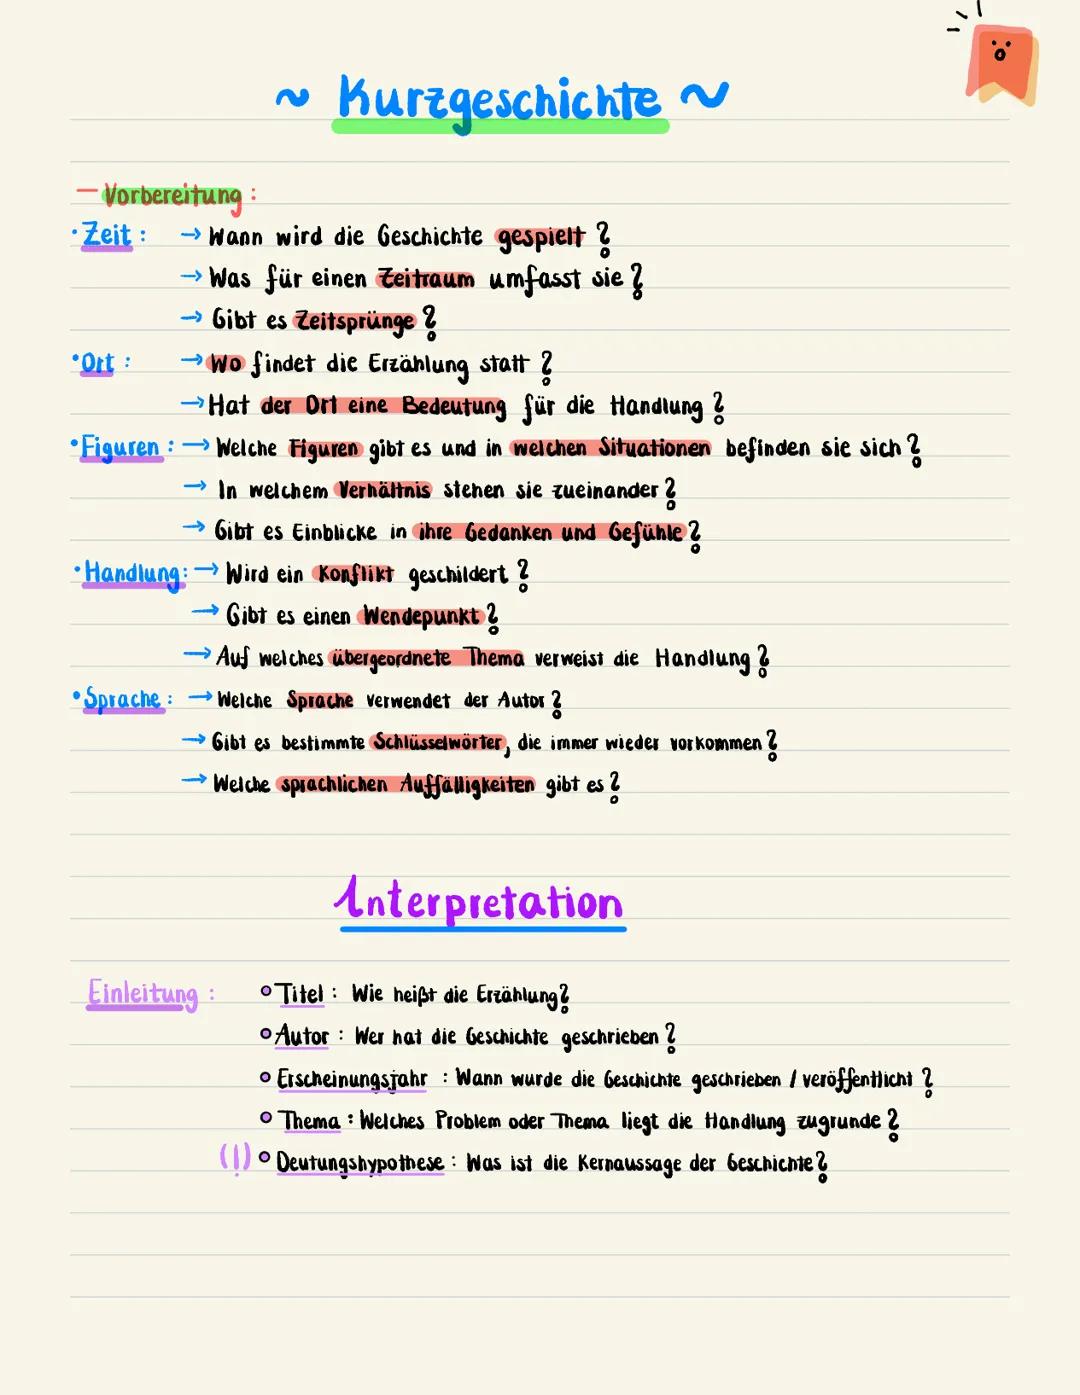 ~ Kurzgeschichte ~
— Vorbereitung :
• Zeit : → Wann wird die Geschichte gespielt ?
→ Was für einen Zeitraum umfasst sie ?
→ Gibt es Zeitsprünge ?
• Ort : → Wo findet die Erzählung statt ?
→ Hat der Ort eine Bedeutung für die Handlung ?
• Figuren : → Welche Figuren gibt es und in welchen Situationen befinden sie sich ?
→ In welchem Verhältnis stehen sie zueinander ?
→ Gibt es Einblicke in ihre Gedanken und Gefühle ?
• Handlung : → Wird ein Konflikt geschildert ?
→ Gibt es einen Wendepunkt ?
→ Auf welches übergeordnete Thema verweist die Handlung ?
• Sprache : → Welche Sprache verwendet der Autor ?
→ Gibt es bestimmte Schlüsselwörter, die immer wieder vorkommen ?
→ Welche sprachlichen Auffälligkeiten gibt es ?
Interpretation
Einleitung : ° Titel : Wie heißt die Erzählung ?
° Autor : Wer hat die Geschichte geschrieben ?
° Erscheinungsjahr : Wann wurde die Geschichte geschrieben / veröffentlicht ?
° Thema : Welches Problem oder Thema liegt die Handlung zugrunde ?
(!) ° Deutungshypothese : Was ist die Kernaussage der Geschichte ?